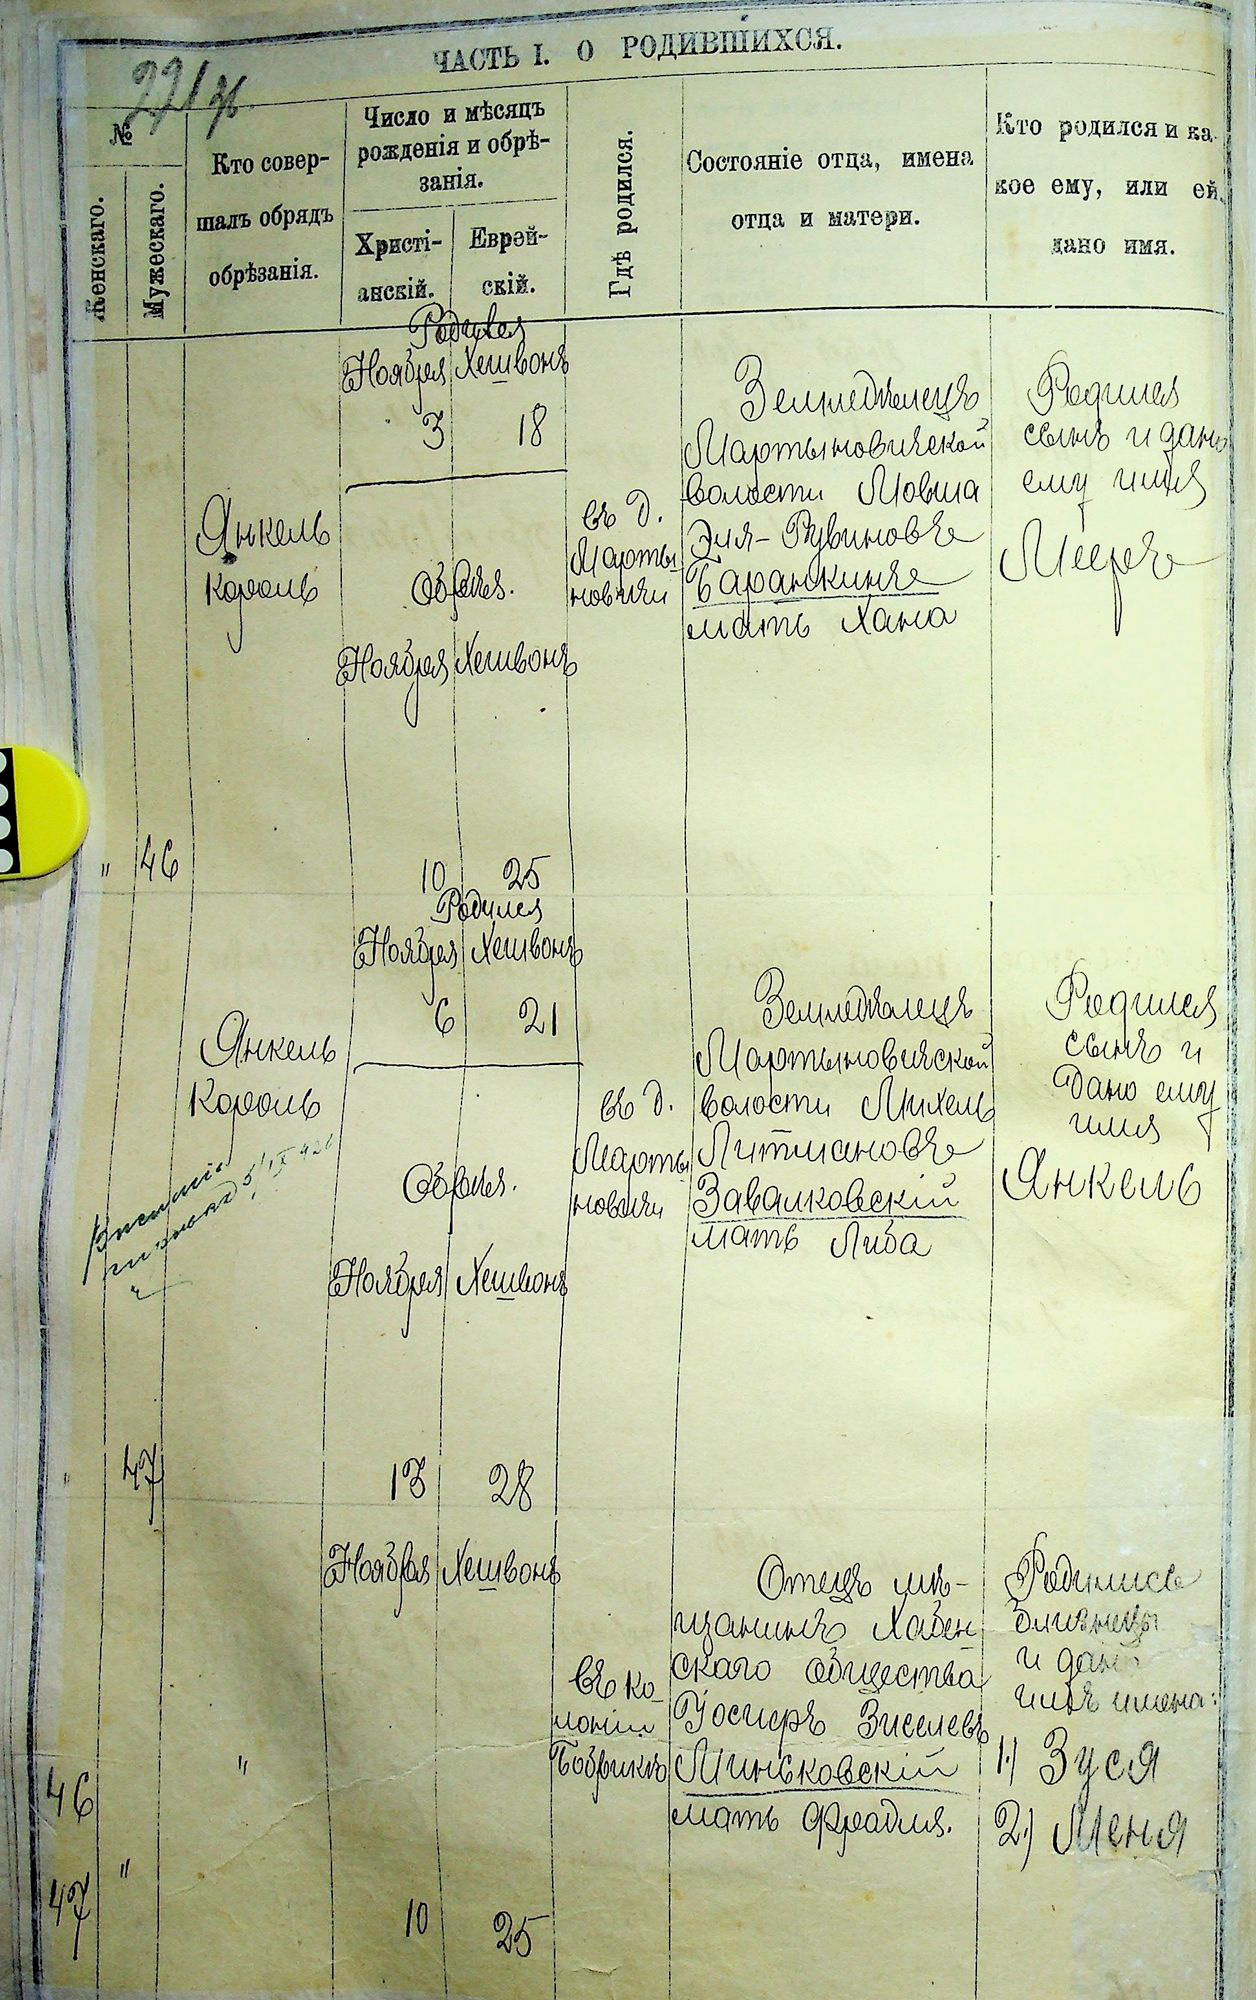 ЧАСТЬ I. О РОДИВШИХСЯ.
221
№
Женскаго.
Мужескаго.
Кто совер-
шалъ обрядъ
обрѣзанія.
Число и мѣсяцъ
рожденія и обрѣ-
занія.
Христі-
анскій.
Еврей-
скій.
Гдѣ родился.
Состояніе отца, имена
отца и матери.
Кто родился и ка-
кое ему, или ей,
дано имя.
" 46
Янкель
Король
Родился
Ноября Хешвонъ
3 18
Обрѣз.
Ноября Хешвонъ
10 25
въ д.
Марты
новичи
Земледѣлецъ
Мартыновичской
волости Мовша
Эля-Рувиновъ
Баранкинъ
мать Хана
Родился
сынъ и дано
ему имя
Мееръ
" 47
Янкель
Король
Родился
Ноября Хешвонъ
6 21
Обрѣз.
Ноября Хешвонъ
13 28
въ д.
Марты
новичи
Земледѣлецъ
Мартыновичской
волости Михель
Литмановъ
Завалковскій
мать Либа
Родился
сынъ и
дано ему
имя
Янкель
46
47 "
"
Ноября Хешвонъ
10 25
въ ко-
лоніи
Бобрикъ
Отецъ мѣ-
щанинъ Хабен
скаго общества
Іосиеръ Зиселевъ
Миньковскій
мать Фрадля.
Родились
близнецы
и дан
имъ имена:
1.) Зуся
2.) Меня